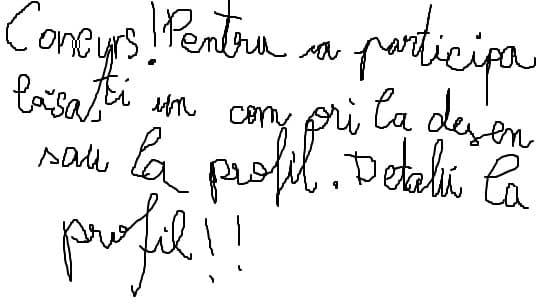 Concurs! Pentru a participa
lăsați un com ori la desen
sau la profil. Detalii la
profil!!